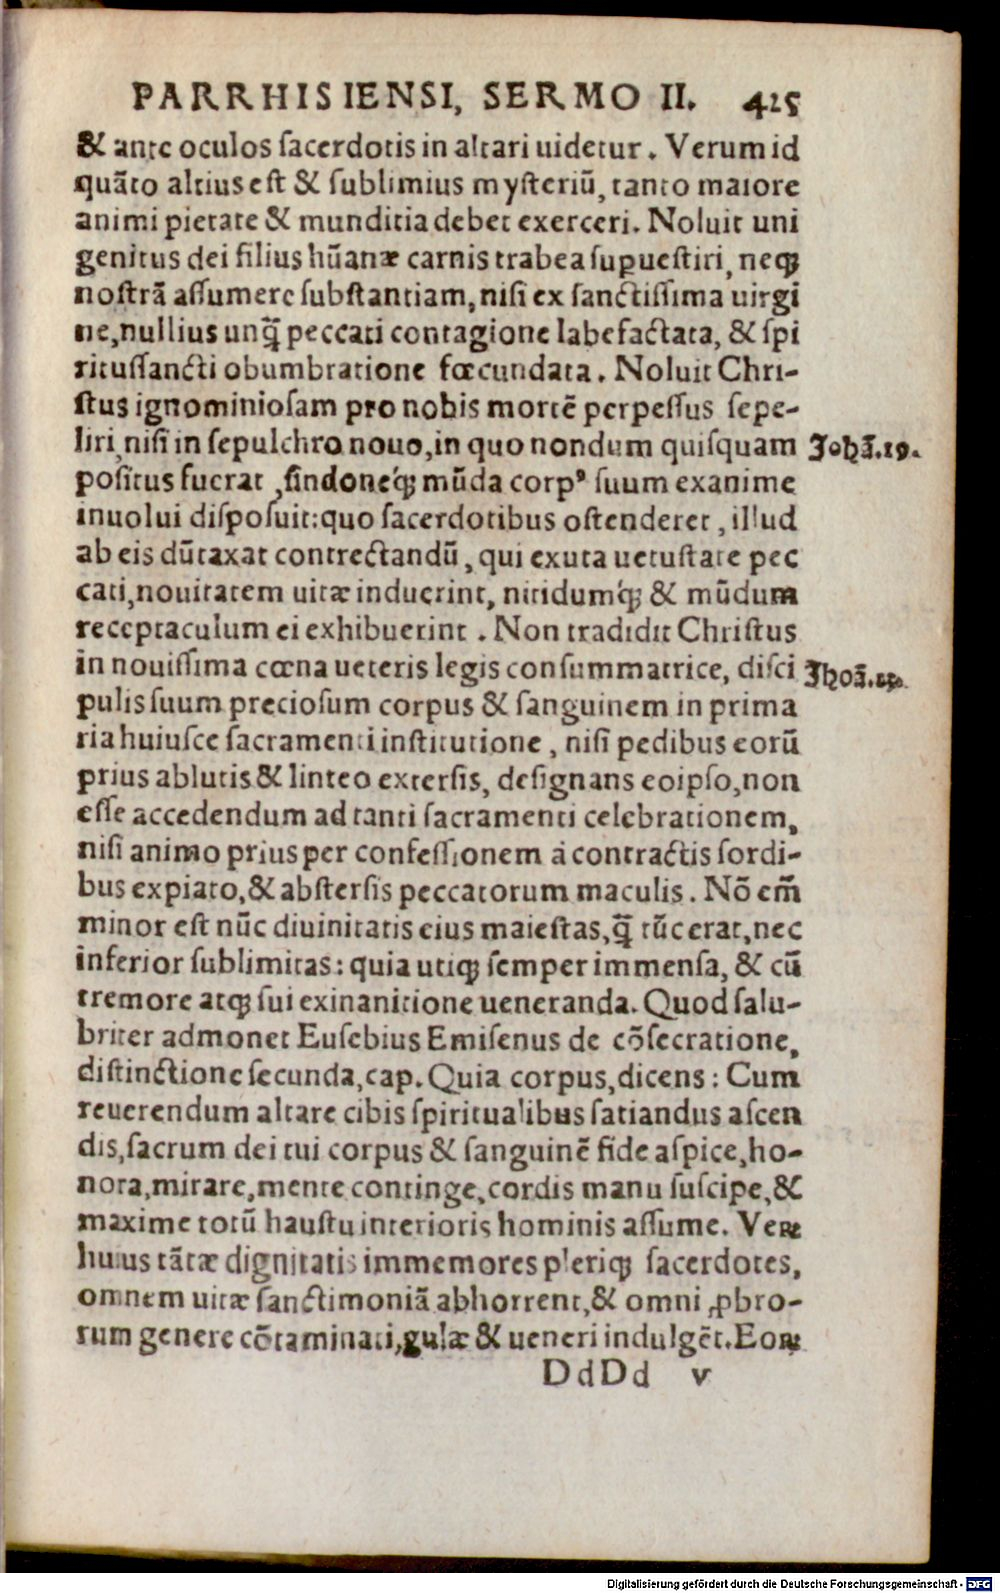 PARRHISIENSI, SERMO II. 425
& ante oculos ſacerdotis in altari uidetur. Verum id
quãto altius eſt & ſublimius myſteriũ, tanto maiore
animi pietate & munditia debet exerceri. Noluit uni
genitus dei filius hũanæ carnis trabea suꝑueſtiri, neqꝫ
noſtrã aſſumere ſubſtantiam, niſi ex ſanctiſſima uirgi
ne, nullius unq̃ peccati contagione labefactata, & ſpi
rituſſancti obumbratione fœcundata. Noluit Chri-
ſtus ignominioſam pro nobis mortẽ perpeſſus ſepe-
liri, niſi in ſepulchro nouo, in quo nondum quiſquam
Johã.19.
poſitus fuerat, ſindoneq́ꝫ mũda corpꝰ ſuum exanime
inuolui diſpoſuit: quo ſacerdotibus oſtenderet, illud
ab eis dũtaxat contrectandũ, qui exuta uetuſtate pec
cati, nouitatem uitæ induerint, nitidumq́ꝫ & mũdum
receptaculum ei exhibuerint. Non tradidit Chriſtus
in nouiſſima cœna ueteris legis conſummatrice, diſci
Jhoã.13.
pulis ſuum precioſum corpus & ſanguinem in prima
ria huiuſce ſacramenti inſtitutione, niſi pedibus eorũ
prius ablutis & linteo exterſis, deſignans eoipſo, non
eſſe accedendum ad tanti ſacramenti celebrationem,
niſi animo prius per confeſſionem à contractis ſordi-
bus expiato, & abſterſis peccatorum maculis. Nõ em̃
minor eſt nũc diuinitatis eius maieſtas, q̃ tũc erat, nec
inferior ſublimitas: quia utiqꝫ ſemper immenſa, & cũ
tremore atqꝫ ſui exinanitione ueneranda. Quod ſalu-
briter admonet Euſebius Emiſenus de cõſecratione,
diſtinctione ſecunda, cap. Quia corpus, dicens: Cum
reuerendum altare cibis ſpiritualibus ſatiandus aſcen
dis, ſacrum dei tui corpus & ſanguinẽ fide aſpice, ho-
nora, mirare, mente continge, cordis manu ſuſcipe, &
maxime totũ hauſtu interioris hominis aſſume. Veꝝ
huius tãtæ dignitatis immemores pleriqꝫ ſacerdotes,
omnem uitæ ſanctimoniã abhorrent, & omni ꝓbro-
rum genere cõtaminati, gulæ & ueneri indulgẽt. Eoꝝ
DdDd v
Digitalisierung gefördert durch die Deutsche Forschungsgemeinschaft - DFG